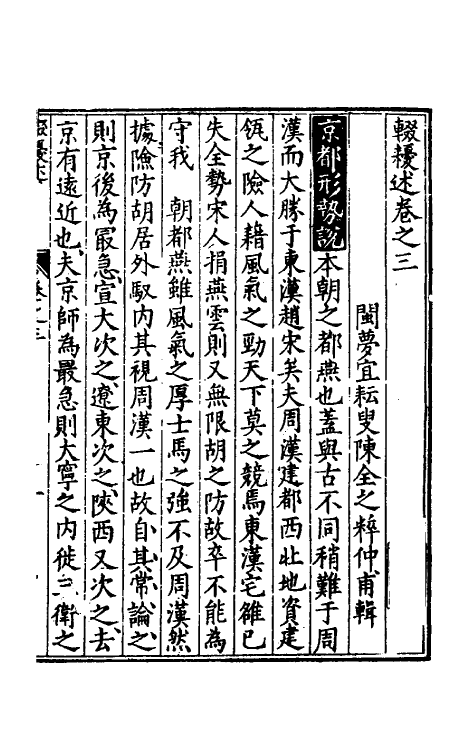 輟耰述卷之三
閩夢宜耘叟陳全之粹仲甫輯
京都形勢說本朝之都燕也蓋與古不同稍難于周
漢而大勝于東漢趙宋矣夫周漢建都西北地資建
瓴之險人藉風氣之勁天下莫之競焉東漢宅雒已
失全勢宋人捐燕雲則又無限胡之防故卒不能為
守我　朝都燕雖風氣之厚士馬之強不及周漢然
據險防胡居外馭内其視周漢一也故自其常論之
則京後為㝡急宣大次之遼東次之陝西又次之去
京有遠近也夫京師為最急則大寧之内徙三衛之